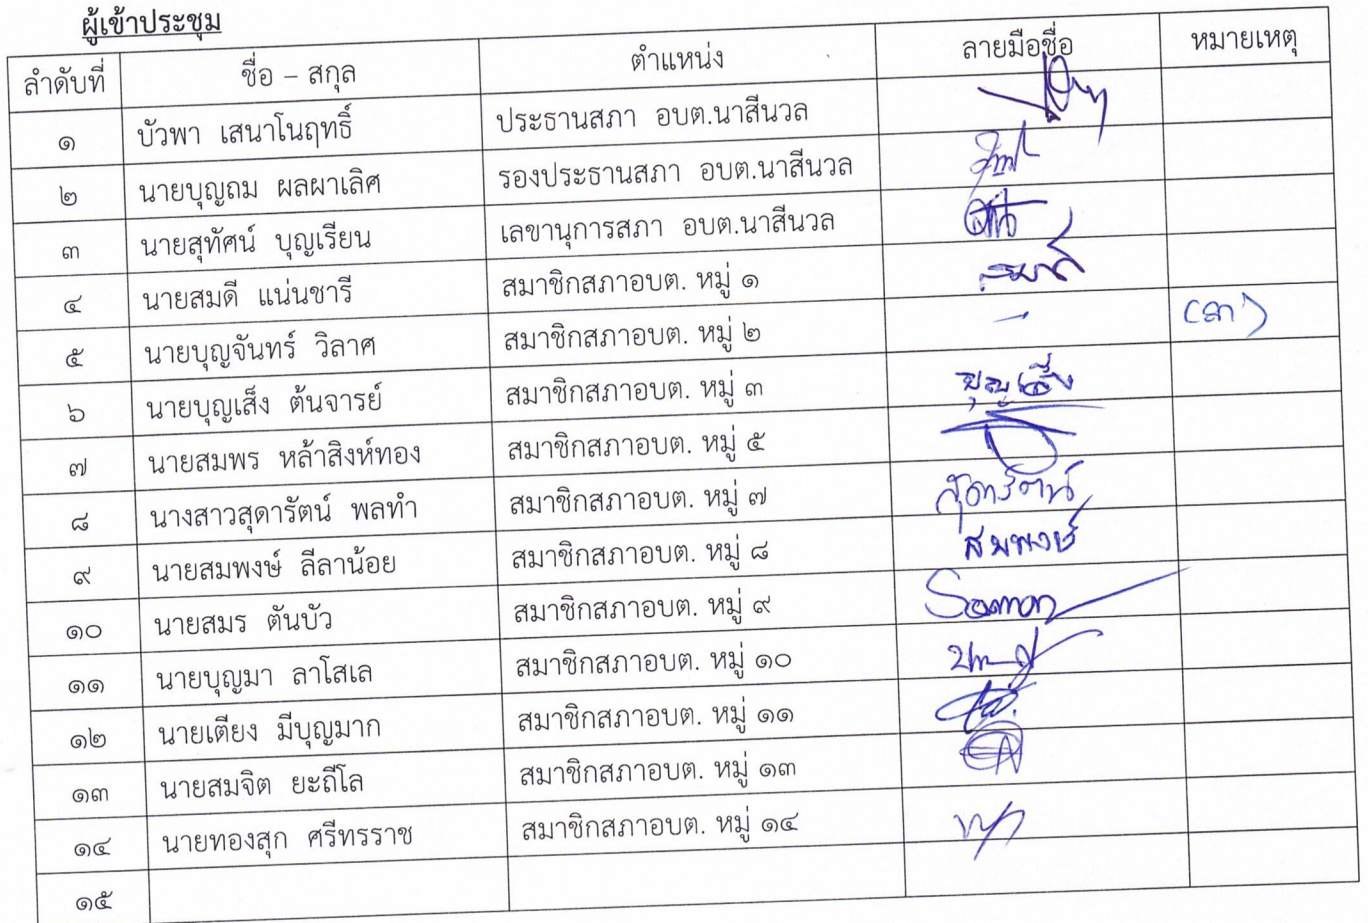 ผู้เข้าประชุม
ลำดับที่ ชื่อ – สกุล ตำแหน่ง ลายมือชื่อ หมายเหตุ
๑ บัวพา เสนาโนฤทธิ์ ประธานสภา อบต.นาสีนวล
๒ นายบุญถม ผลผาเลิศ รองประธานสภา อบต.นาสีนวล
๓ นายสุทัศน์ บุญเรียน เลขานุการสภา อบต.นาสีนวล
๔ นายสมดี แน่นชารี สมาชิกสภาอบต. หมู่ ๑
๕ นายบุญจันทร์ วิลาศ สมาชิกสภาอบต. หมู่ ๒ - (ลา)
๖ นายบุญเส็ง ต้นจารย์ สมาชิกสภาอบต. หมู่ ๓ บุญเส็ง
๗ นายสมพร หล้าสิงห์ทอง สมาชิกสภาอบต. หมู่ ๕
๘ นางสาวสุดารัตน์ พลทำ สมาชิกสภาอบต. หมู่ ๗ สุดารัตน์
๙ นายสมพงษ์ ลีลาน้อย สมาชิกสภาอบต. หมู่ ๘ สมพงษ์
๑๐ นายสมร ตันบัว สมาชิกสภาอบต. หมู่ ๙ Samon
๑๑ นายบุญมา ลาโสเล สมาชิกสภาอบต. หมู่ ๑๐
๑๒ นายเตียง มีบุญมาก สมาชิกสภาอบต. หมู่ ๑๑
๑๓ นายสมจิต ยะถีโล สมาชิกสภาอบต. หมู่ ๑๓
๑๔ นายทองสุก ศรีทรราช สมาชิกสภาอบต. หมู่ ๑๔
๑๕